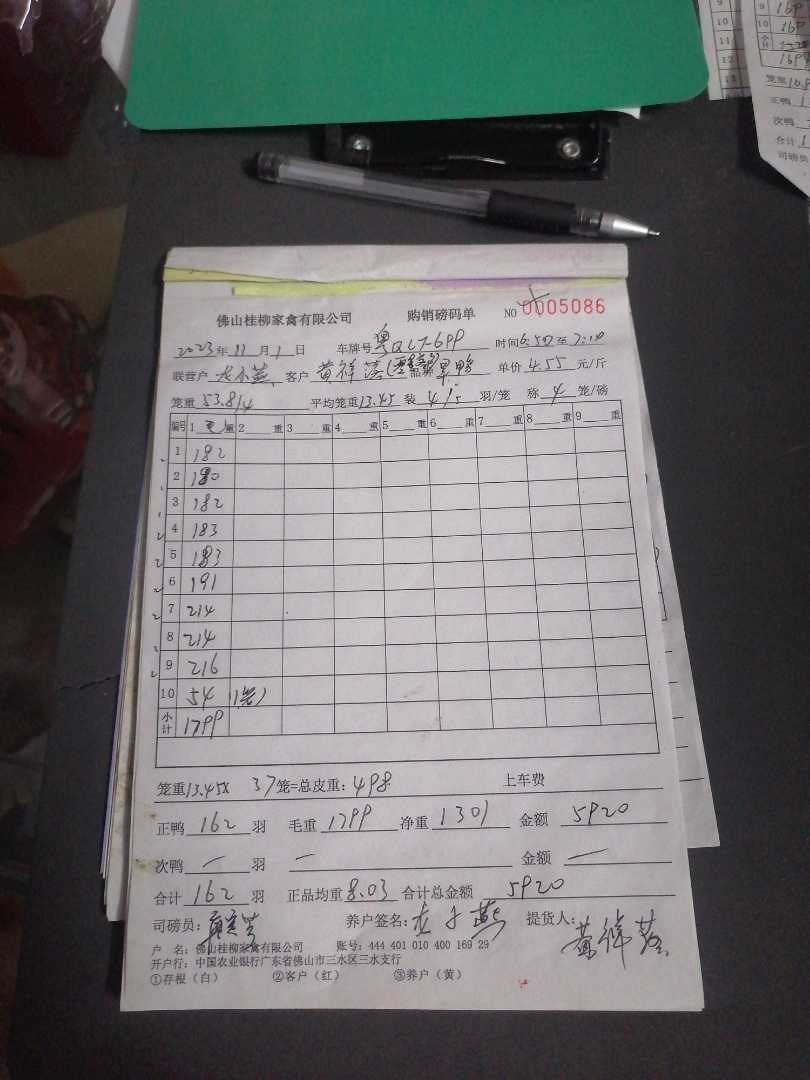 佛山桂柳家禽有限公司 购销磅码单 NO 0005086
2023年11月1日 车牌号 粤QLT-699 时间6:50至7:10
联营户 客户 黄祥 品种 鸭 单价 4.55 元/斤
笼重 53.8/4 平均笼重13.45 装 4/5 羽/笼 称 4 笼/磅
编号 1 毛 重 2 重 3 重 4 重 5 重 6 重 7 重 8 重 9 重
1 182
2 180
3 182
4 183
5 183
6 191
7 214
8 214
9 216
10 54 (1笼)
小计 1799
笼重13.45X 37笼=总皮重:498 上车费
正鸭 162 羽 毛重 1799 净重 1301 金额 5920
次鸭 — 羽 — 金额 —
合计 162 羽 正品均重 8.03 合计总金额 5920
司磅员: 养户签名: 燕 提货人: 黄祥
户 名: 佛山桂柳家禽有限公司 账号: 444 401 010 400 169 29
开户行: 中国农业银行广东省佛山市三水区三水支行
①存根(白) ②客户(红) ③养户(黄)
9
10
11
12
13
9 169
10 169
小计
笼重10.9
正鸭 1
次鸭
合计 1
司磅员